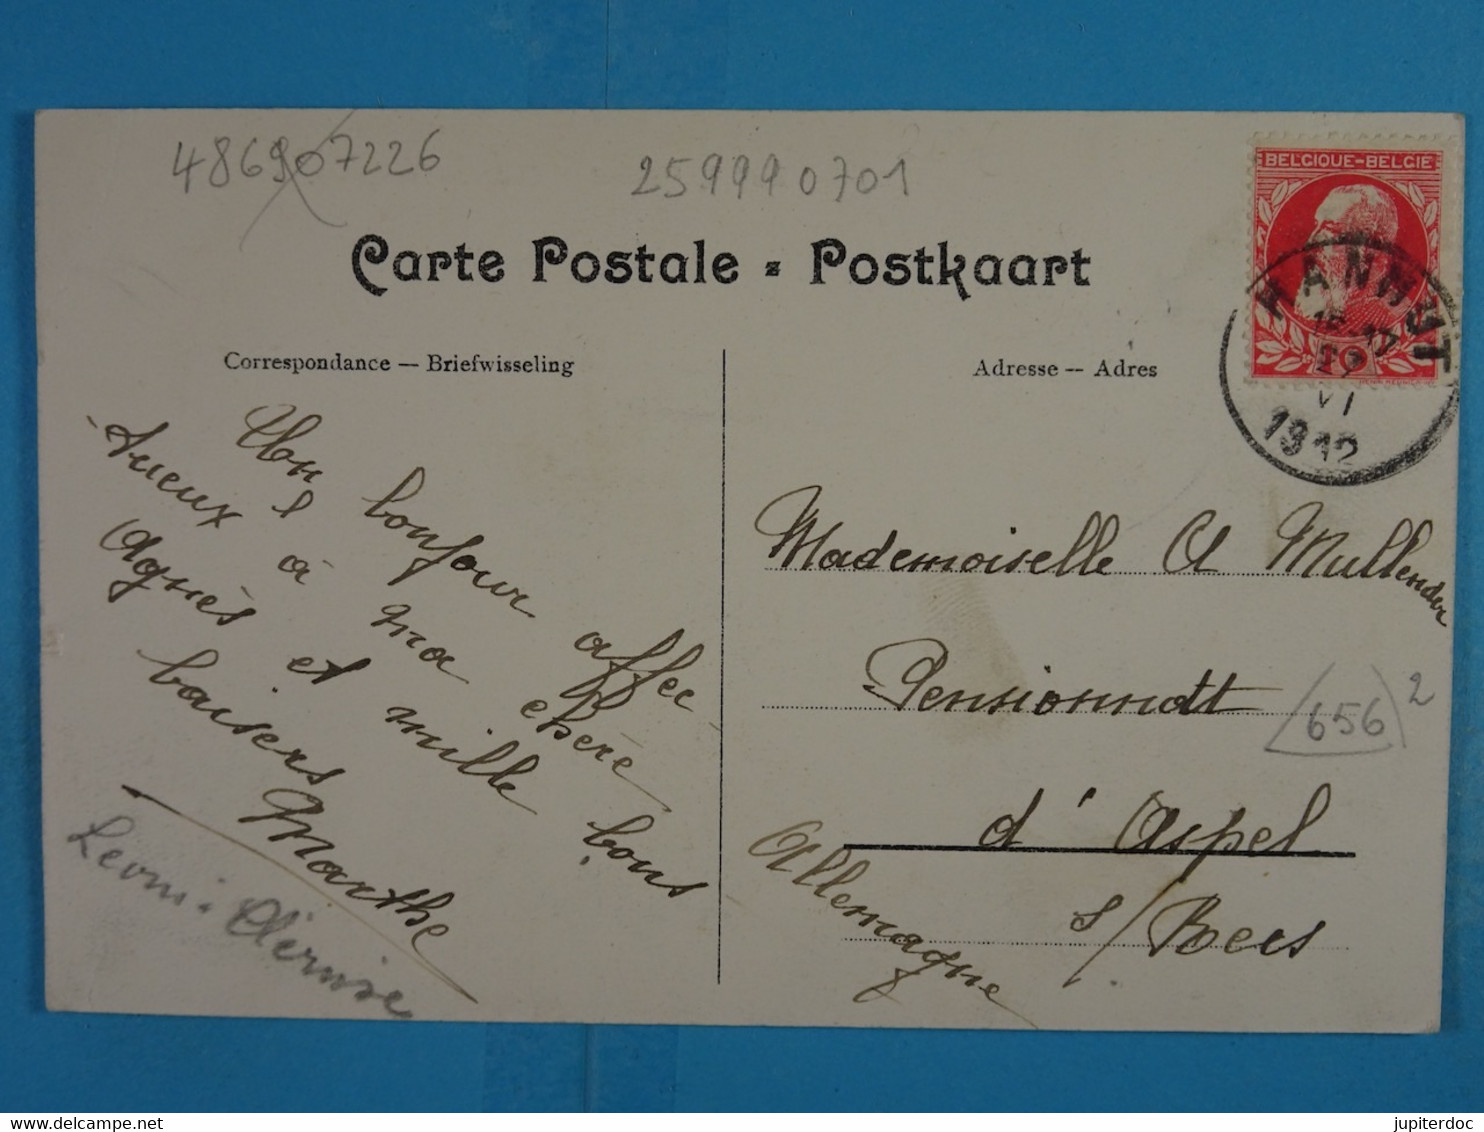 486907226
2599990701
Carte Postale - Postkaart
BELGIQUE-BELGIË
HANNUT
VI
1912
Correspondance — Briefwisseling
Adresse — Adres
Un bonjour affec-
tueux à ma chère
Agnès et mille bons
baisers
Marthe
Mademoiselle A Mullender
Pensionnat
(656)2
d'Aspel
s/Rees
Allemagne
jupiterdoc